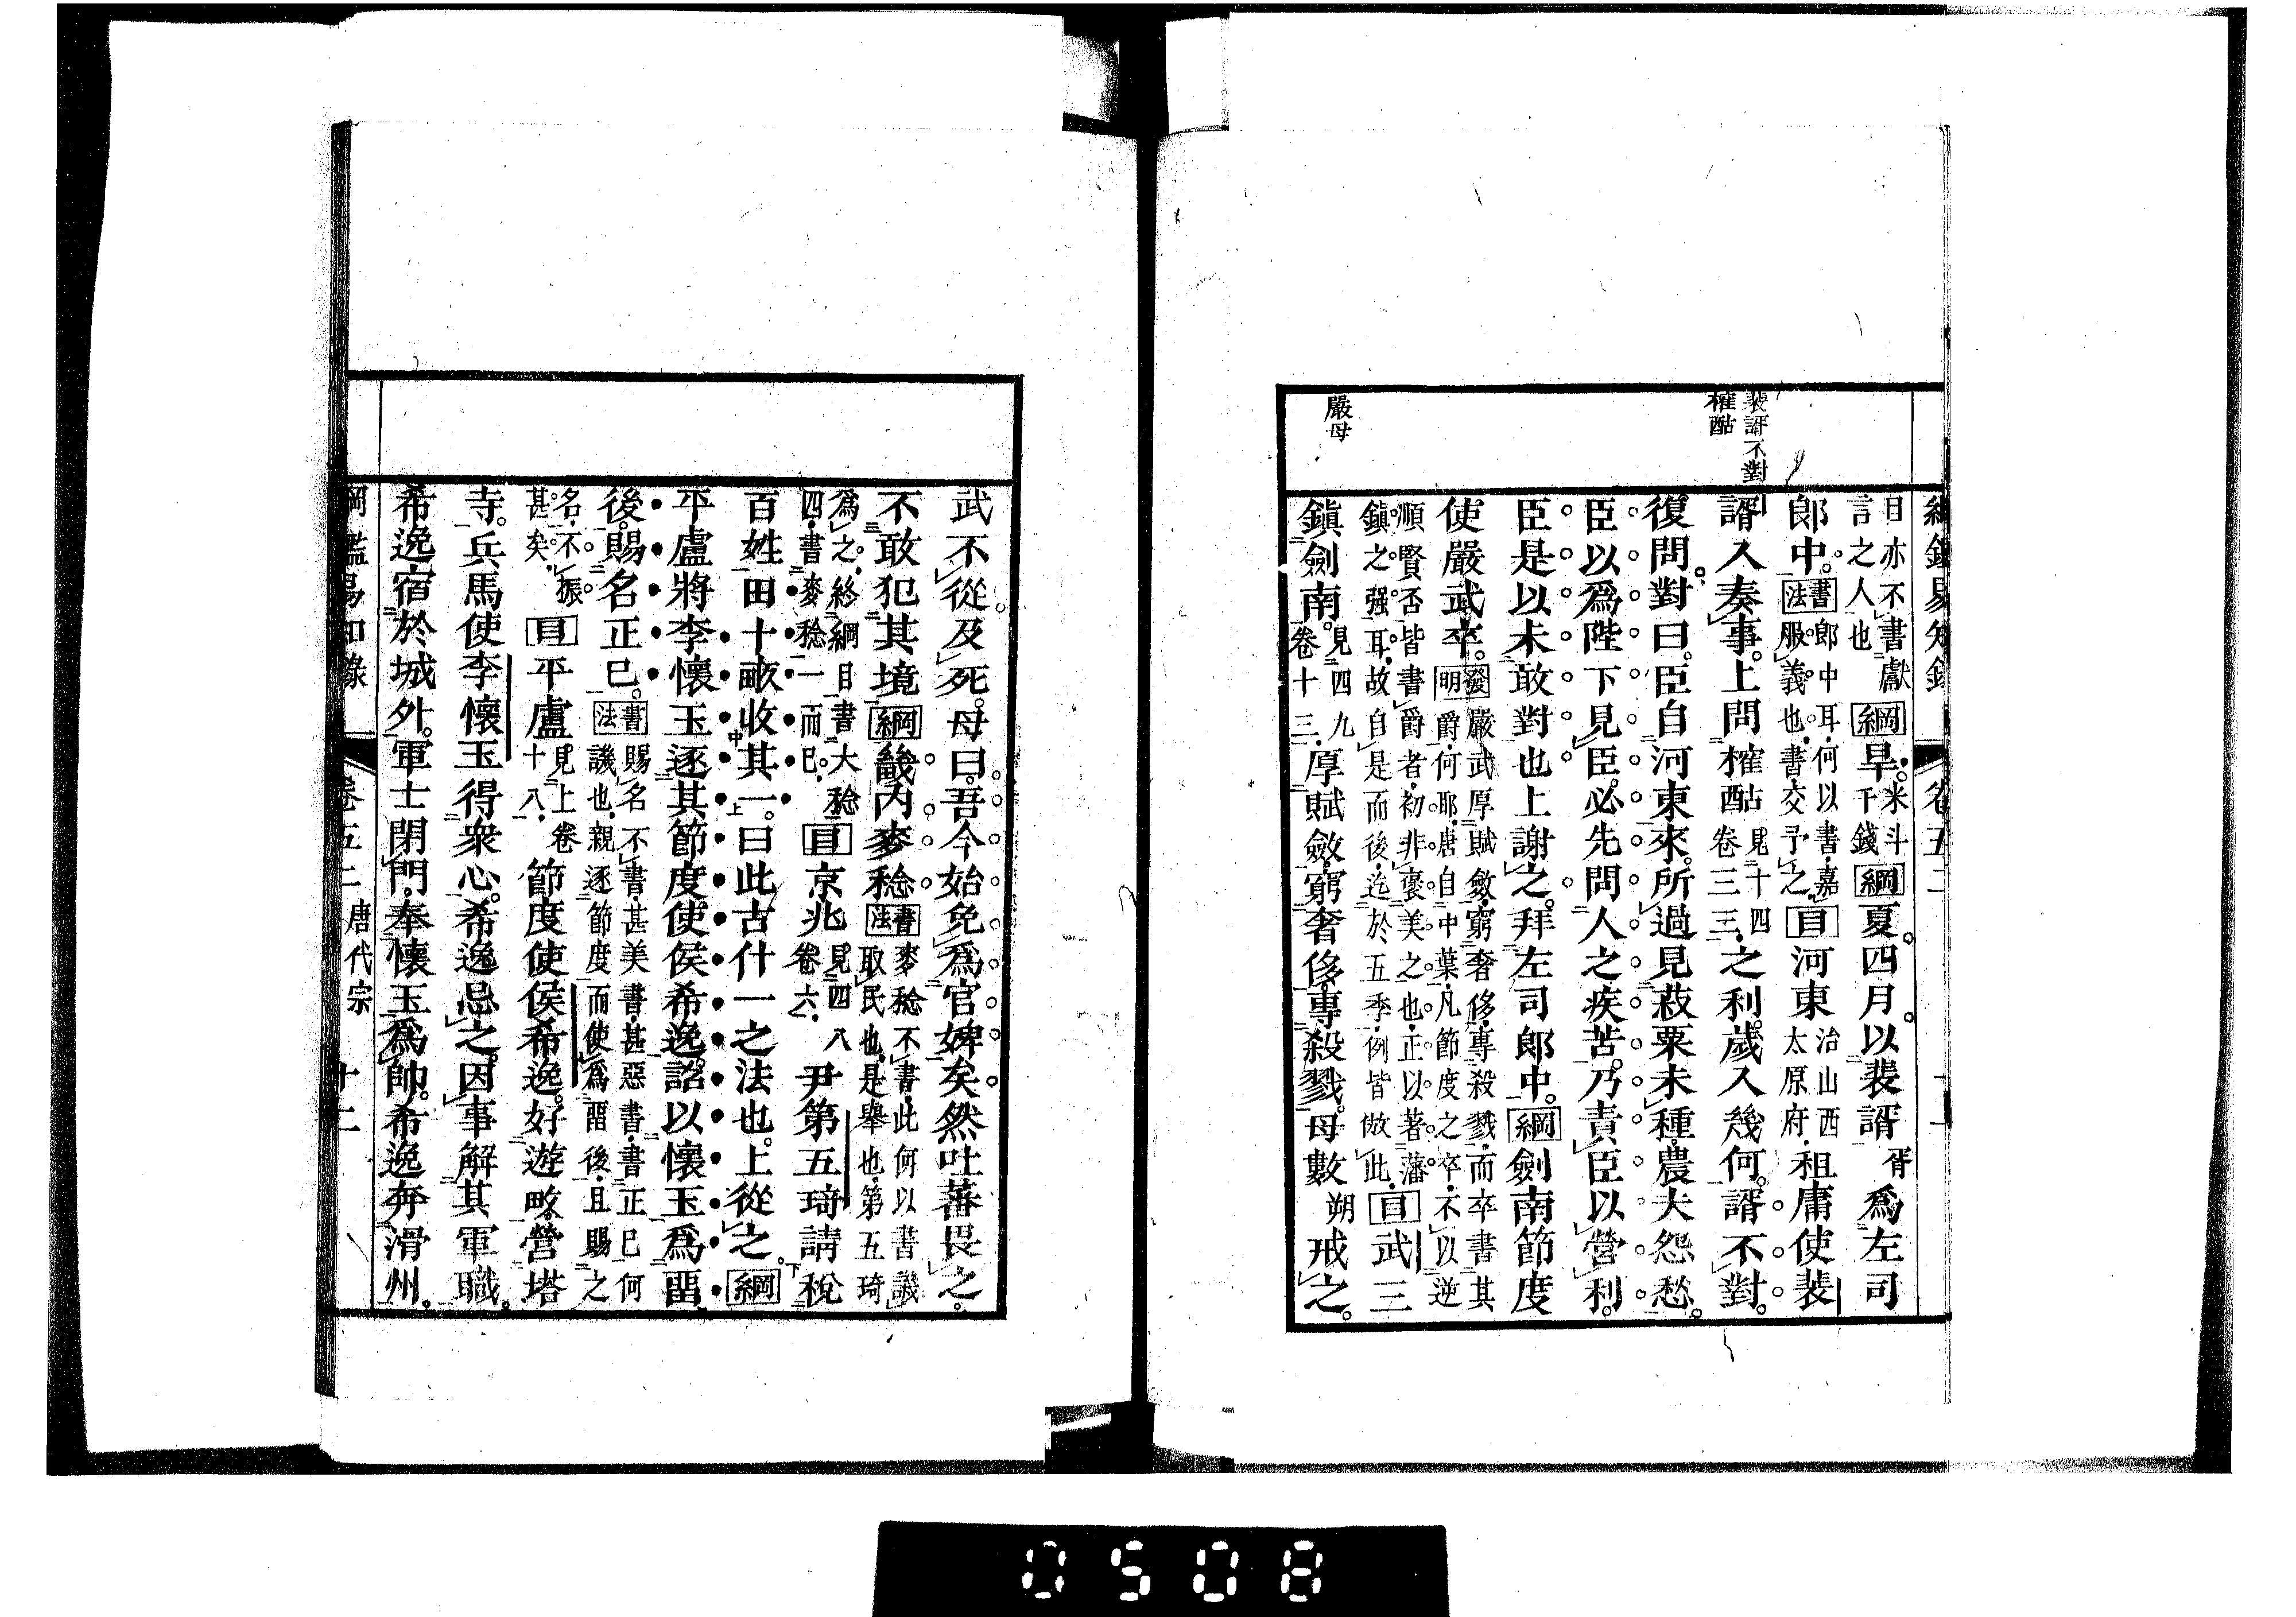 綱鑑易知錄 卷五二
裴諝不對
榷酤
嚴母
目亦不書獻
言之人也
綱旱。米斗
千錢
綱夏。四月。以裴諝胥爲左司
郎中。書法郎中耳。何以書。嘉
服義也。書。交予之。
目河東治山西
太原府。租庸使裴
諝入奏事。上問榷酤見十四
卷三三。之利。歲入幾何。諝不對。
復問。對曰。臣自河東來。所過見菽粟未種。農夫怨愁。
臣以爲陛下見臣。必先問人之疾苦。乃責臣以營利。
臣是以未敢對也上謝之。拜左司郎中。綱劍南節度
使嚴武卒。發明嚴武厚賦斂。窮奢侈。專殺戮。而卒書其
爵。何耶。唐自中葉。凡節度之卒。不以逆
順賢否皆書爵者。初非褒美之也。正以著藩
鎮之强耳。故自是而後。迄於五季。例皆倣此。目武三
鎭劍南。見四九
卷十三。厚賦斂。窮奢侈。專殺戮。母數朔戒之。
武不從。及死。母曰。吾今始免爲官婢矣。然吐蕃畏之。
不敢犯其境綱畿內麥稔書法麥稔不書。此何以書。譏
取民也。是舉也。第五琦
爲之。終綱目書大稔
四。書麥稔一而已。目京兆見四八
卷六。尹第五琦請稅
百姓田十畝收其一。曰此古什一之法也。上從之。綱
平盧將李懷玉逐其節度使侯希逸。詔以懷玉爲畱
後。賜名正已。書法賜名不書。甚美書。甚惡書。書正已何
譏也。親逐節度而使爲畱後。且賜之
名。不振
甚矣。目平盧見上卷
十八。節度使侯希逸。好遊畋。營塔
寺。兵馬使李懷玉得衆心。希逸忌之。因事解其軍職。
希逸宿於城外。軍士閉門。奉懷玉爲帥。希逸奔滑州。
綱鑑易知錄 卷五二 唐代宗 十二
0508